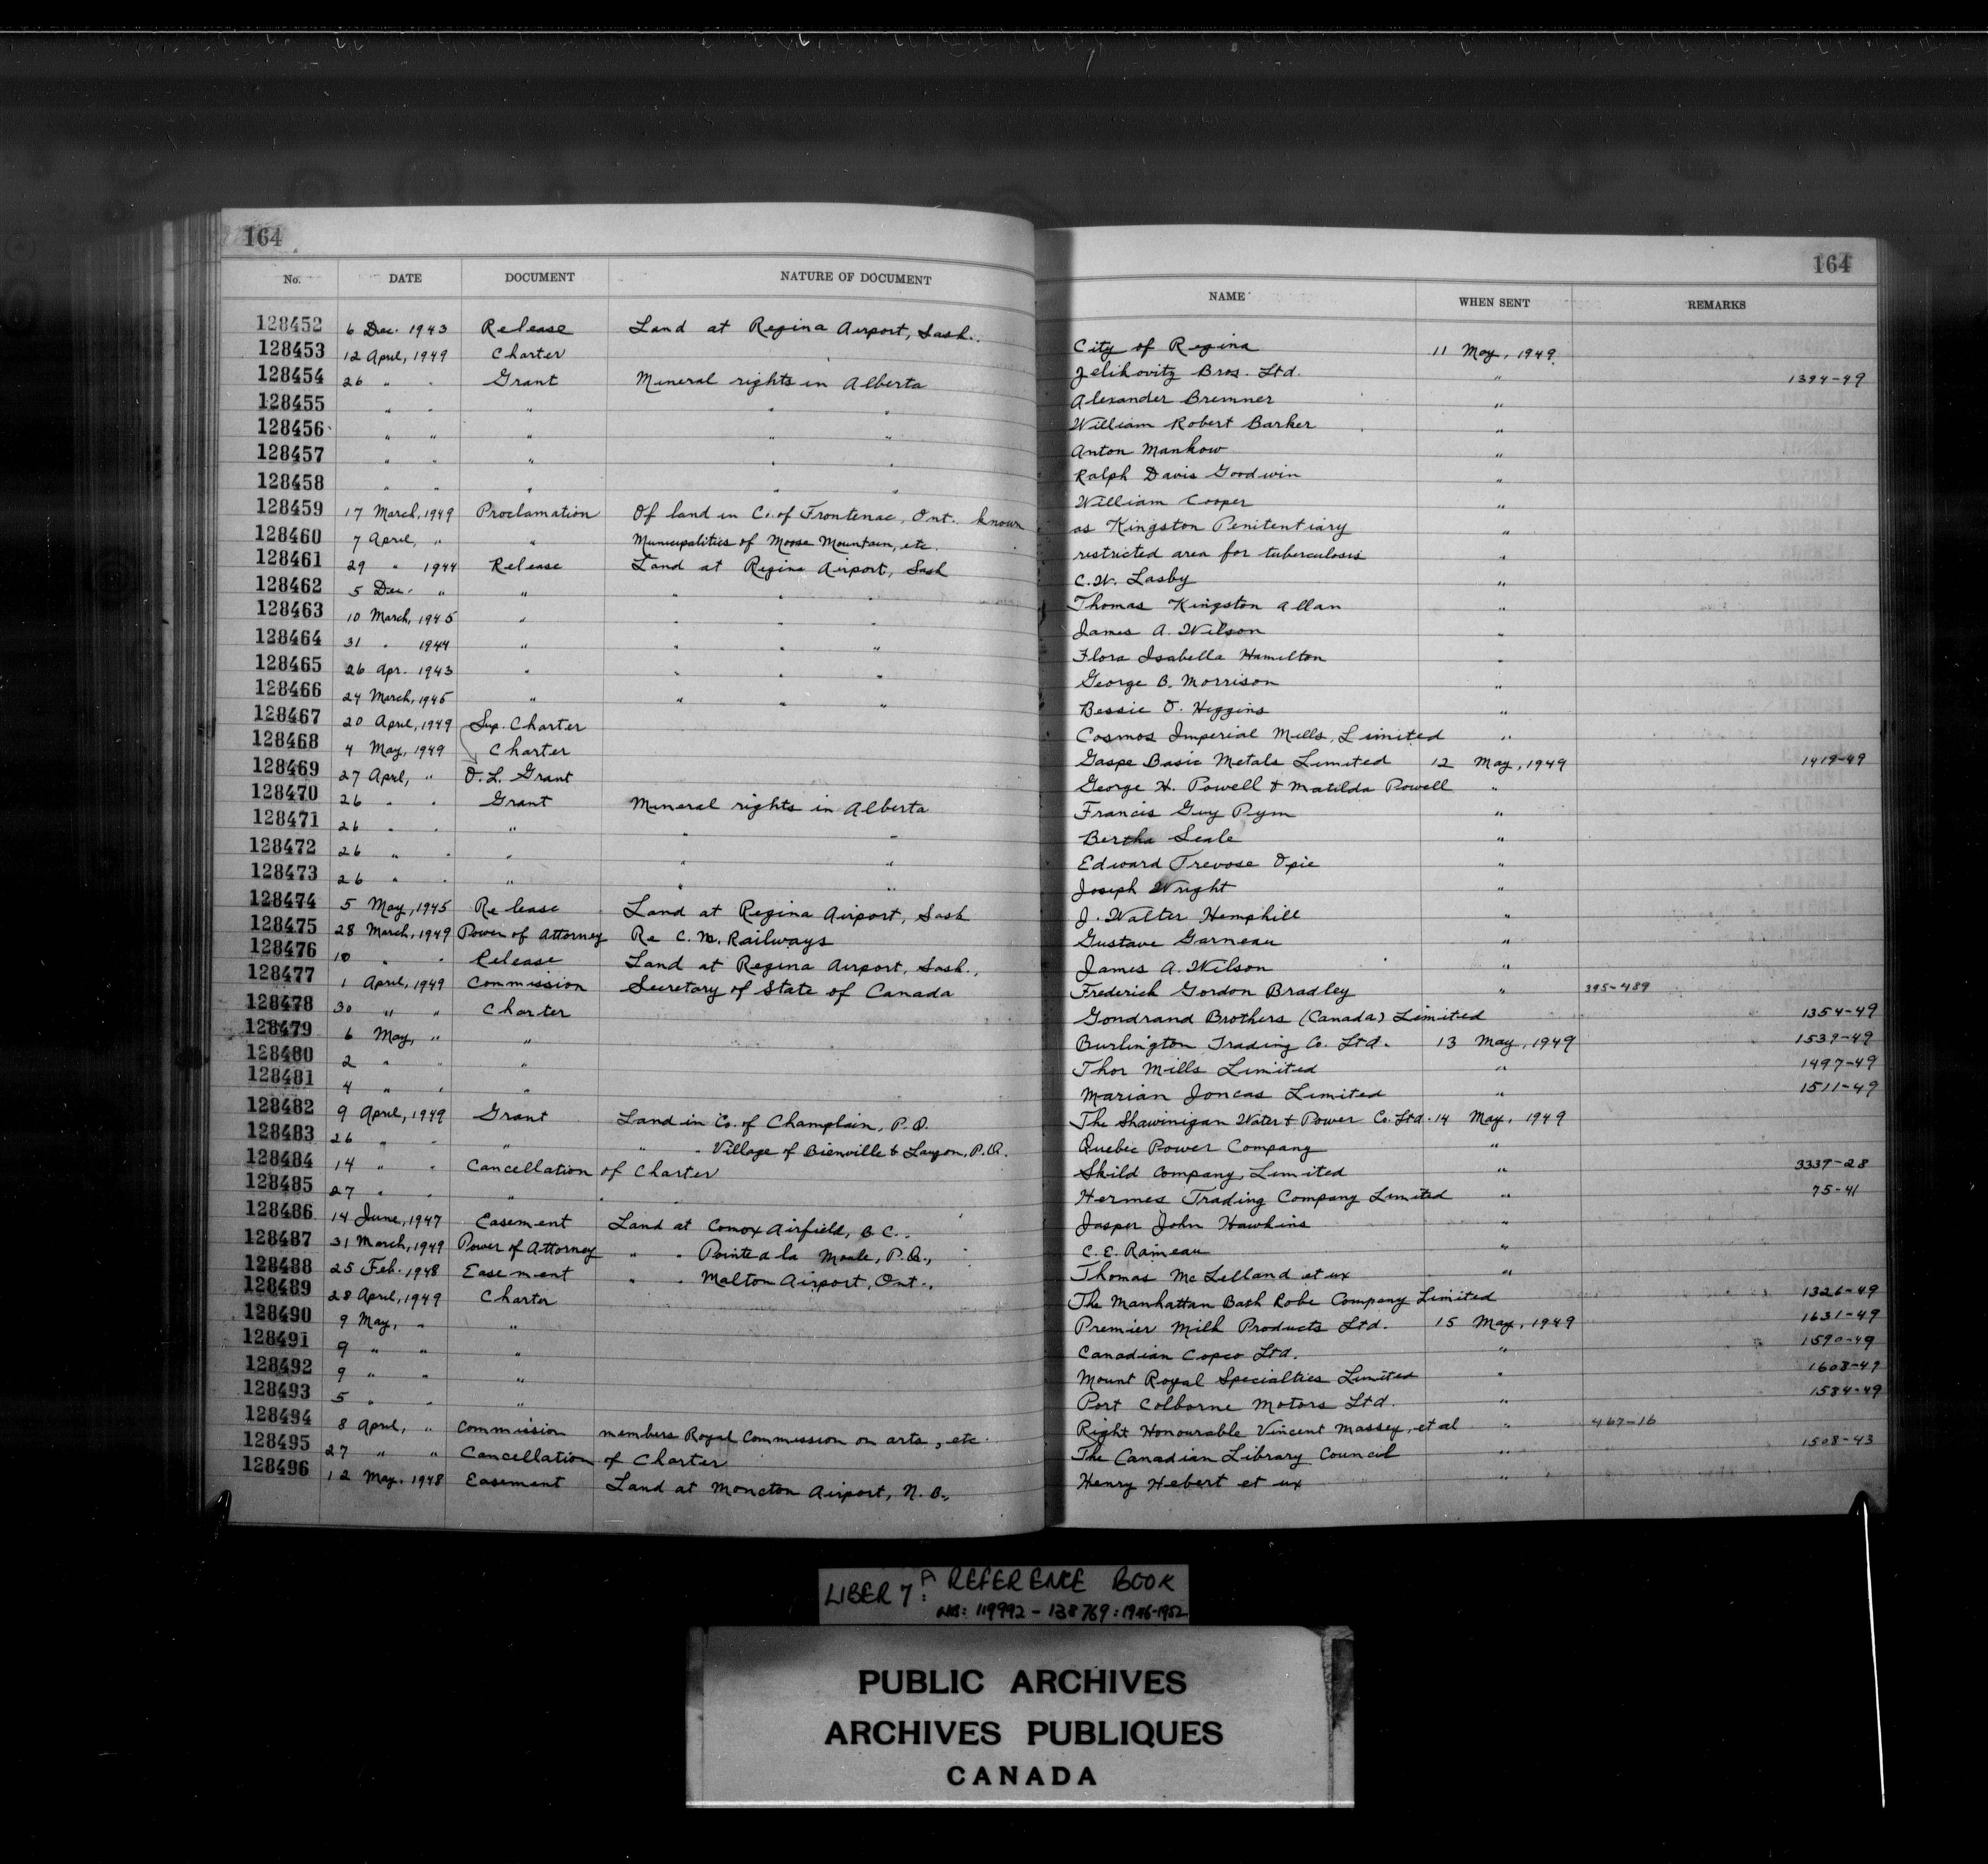 164 164
No. DATE DOCUMENT NATURE OF DOCUMENT NAME WHEN SENT REMARKS
128452 6 Dec. 1943 Release Land at Regina Airport, Sask. City of Regina 11 May, 1949
128453 12 April, 1949 Charter Jelikovitz Bros. Ltd. " 1394-49
128454 26 " " Grant Mineral rights in Alberta Alexander Bremner "
128455 " " " " " William Robert Barker "
128456 " " " " " Anton Mankow "
128457 " " " " " Ralph Davis Goodwin "
128458 " " " " " William Cooper "
128459 17 March, 1949 Proclamation Of land in Co. of Frontenac, Ont. known as Kingston Penitentiary "
128460 7 April, " " Municipalities of Moose Mountain, etc. restricted area for tuberculosis "
128461 29 " 1944 Release Land at Regina Airport, Sask C.W. Lasby "
128462 5 Dec. " " " " " Thomas Kingston Allan "
128463 10 March, 1945 " " " " James A. Wilson "
128464 31 " 1944 " " " " Flora Isabella Hamilton "
128465 26 Apr. 1943 " " " " George B. Morrison "
128466 24 March, 1945 " " " " Bessie O. Higgins "
128467 20 April, 1949 Sup. Charter Cosmos Imperial Mills, Limited "
128468 4 May, 1949 Charter Gaspe Basic Metals Limited 12 May, 1949 1419-49
128469 27 April, " O.L. Grant George H. Powell & Matilda Powell "
128470 26 " " Grant Mineral rights in Alberta Francis Guy Pym "
128471 26 " " " " " Bertha Seale "
128472 26 " " " " " Edward Trevose Opie "
128473 26 " " " " " Joseph Wright "
128474 5 May, 1945 Release Land at Regina Airport, Sask J. Walter Hemphill "
128475 28 March, 1949 Power of Attorney Re C.N. Railways Gustave Garneau "
128476 10 " " Release Land at Regina Airport, Sask., James A. Wilson "
128477 1 April, 1949 Commission Secretary of State of Canada Frederick Gordon Bradley " 395-489
128478 30 " " Charter Gondrand Brothers (Canada) Limited 1354-49
128479 6 May, " " Burlington Trading Co. Ltd. 13 May, 1949 1539-49
128480 2 " " " Thor Mills Limited " 1497-49
128481 4 " " " Marian Joncas Limited " 1511-49
128482 9 April, 1949 Grant Land in Co. of Champlain, P.Q. The Shawinigan Water & Power Co. Ltd. 14 May, 1949
128483 26 " " " " " Village of Bienville & Lauzon, P.Q. Quebec Power Company "
128484 14 " " Cancellation of Charter Skild Company, Limited " 3339-28
128485 27 " " " " " Hermes Trading Company Limited " 75-41
128486 14 June, 1947 Easement Land at Comox Airfield, B.C., Jasper John Hawkins "
128487 31 March, 1949 Power of Attorney " " Pointe a la Moule, P.Q., C.E. Rameau "
128488 25 Feb. 1948 Easement " " Malton Airport, Ont., Thomas McLelland et ux "
128489 28 April, 1949 Charter The Manhattan Bath Robe Company Limited 1326-49
128490 9 May, " " Premier Milk Products Ltd. 15 May, 1949 1631-49
128491 9 " " " Canadian Copco Ltd. " 1590-49
128492 9 " " " Mount Royal Specialties Limited " 1608-49
128493 5 " " " Port Colborne Motors Ltd. " 1584-49
128494 8 April, " Commission members Royal Commission on arts, etc. Right Honourable Vincent Massey, et al " 467-16
128495 27 " " Cancellation of Charter The Canadian Library Council " 1508-43
128496 12 May, 1948 Easement Land at Moncton Airport, N.B., Henry Hebert et ux "
LIBER 7: A REFERENCE BOOK
NOS: 119992 - 138769: 1946-1952
PUBLIC ARCHIVES
ARCHIVES PUBLIQUES
CANADA